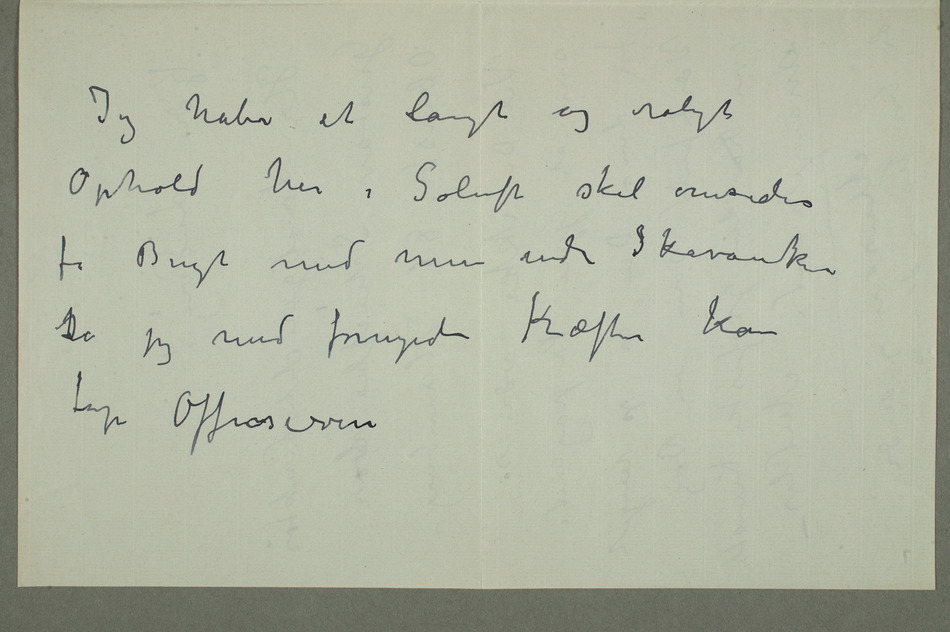 Jeg haber et langt og roligt
Ophold her i Soluft skal omsider
få Bugt med mine indre Skavanker
Så jeg med fornyede Kræfter kan
tage Offensiven